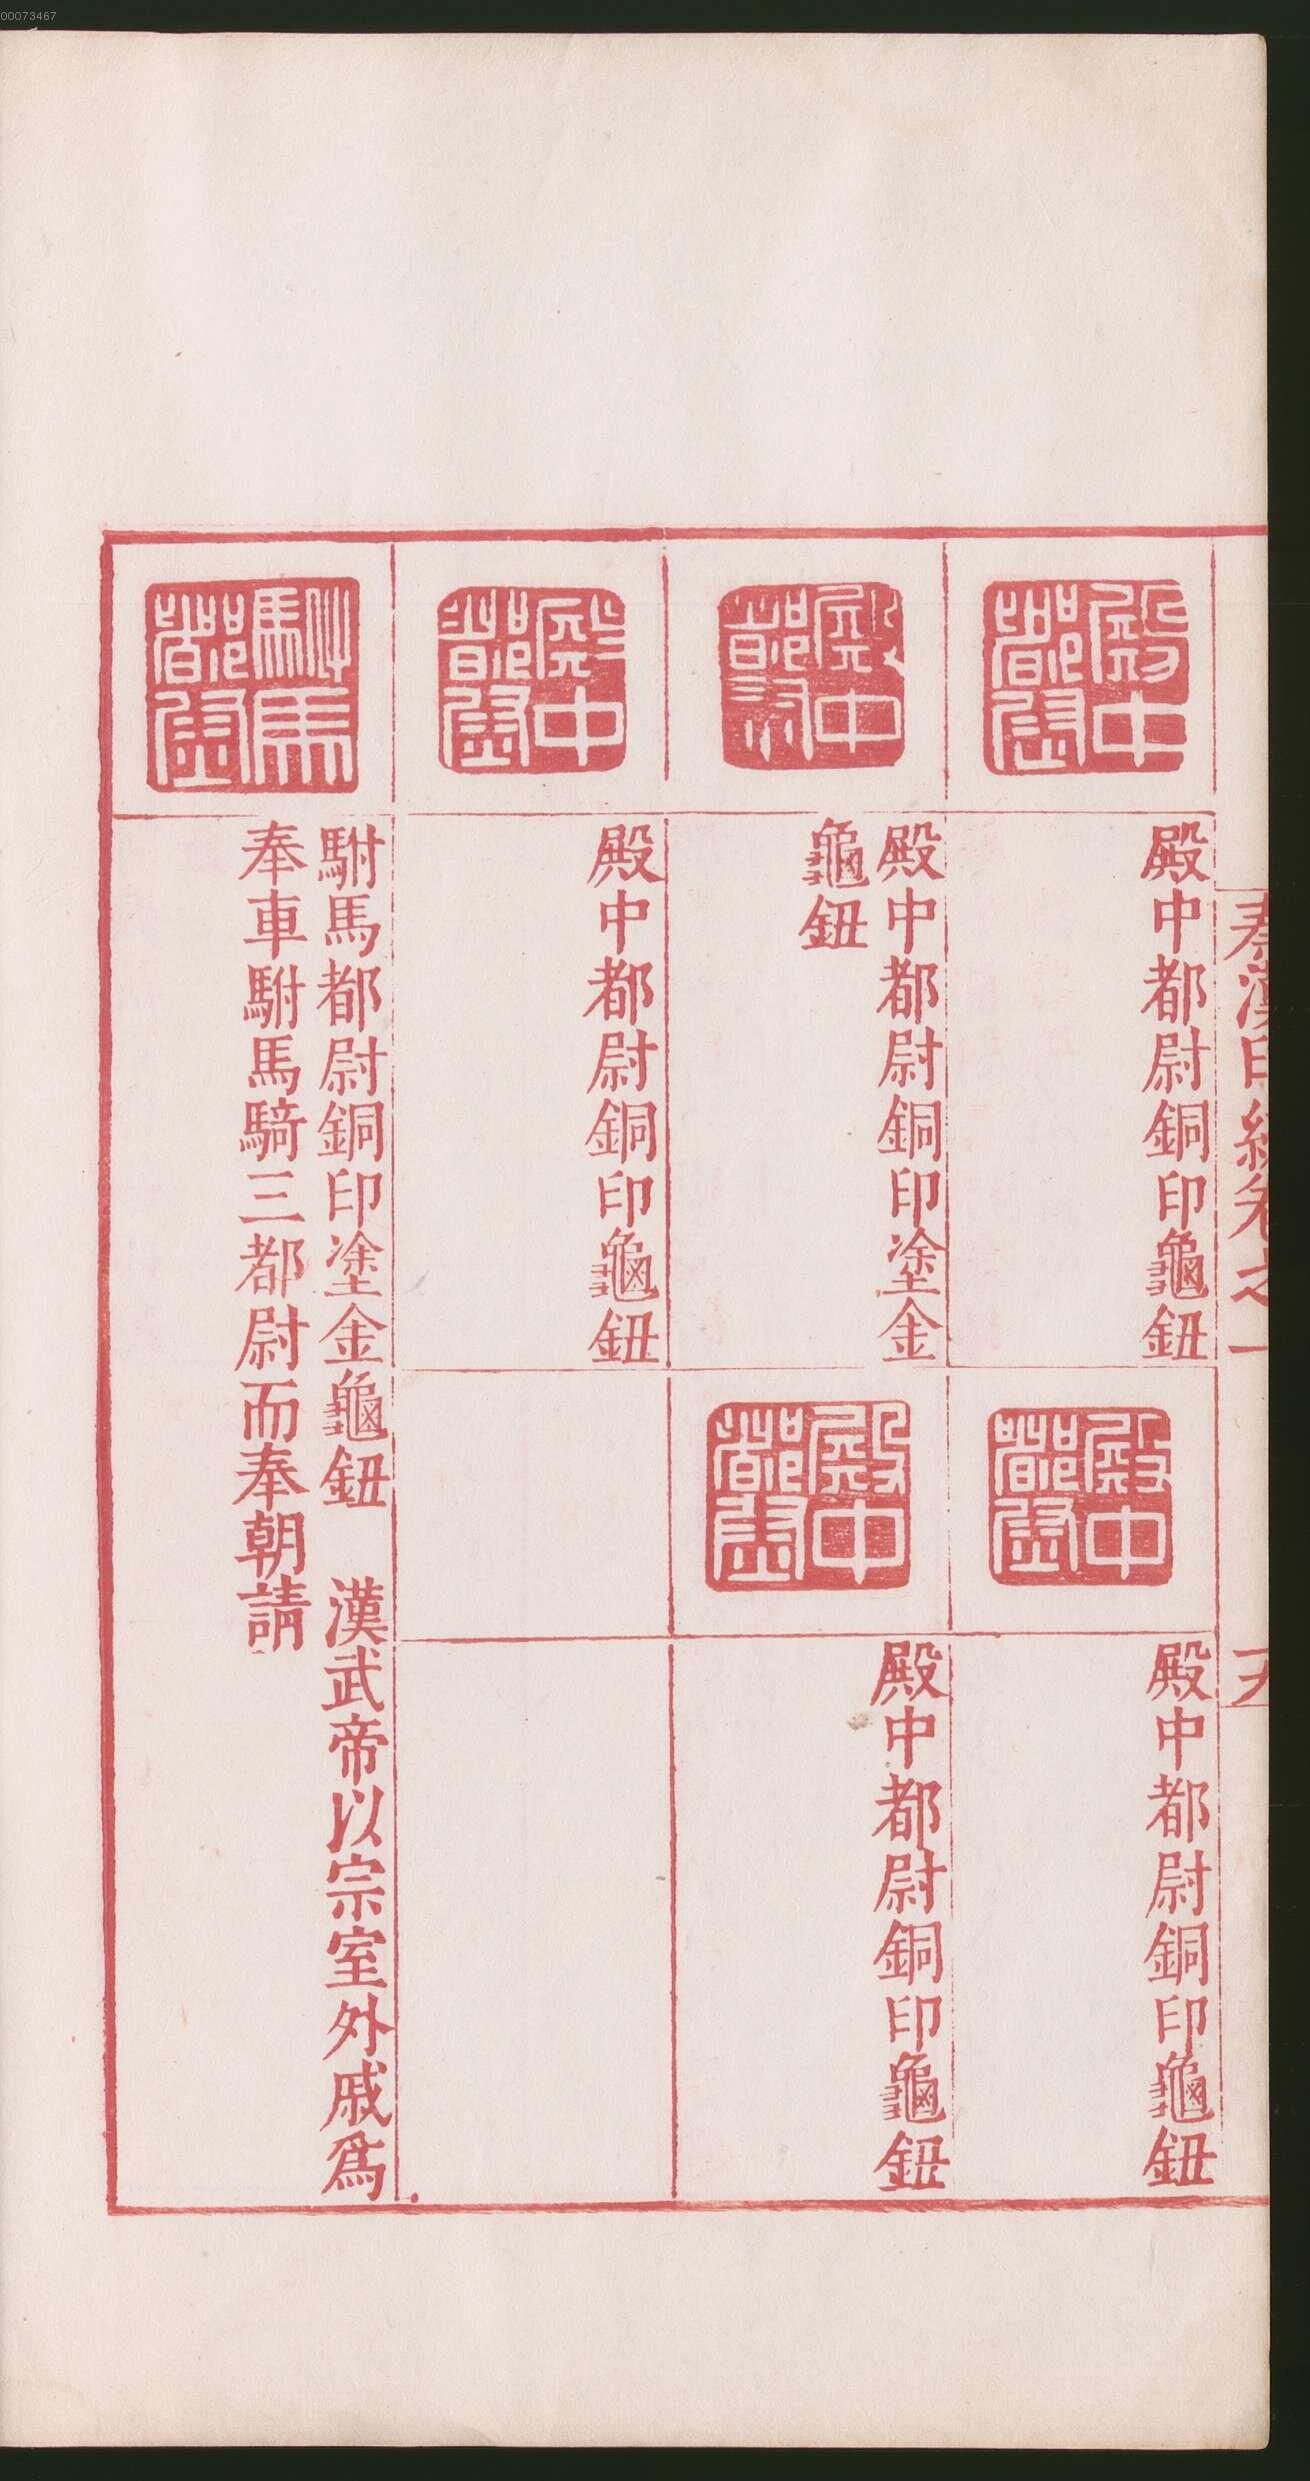 00073467
秦漢印統卷之一
殿中都尉
殿中都尉銅印龜鈕
殿中都尉
殿中都尉銅印龜鈕
殿中都尉
殿中都尉銅印塗金
龜鈕
殿中都尉
殿中都尉銅印龜鈕
殿中都尉
殿中都尉銅印龜鈕
駙馬都尉
駙馬都尉銅印塗金龜鈕　漢武帝以宗室外戚爲
奉車駙馬騎三都尉而奉朝請